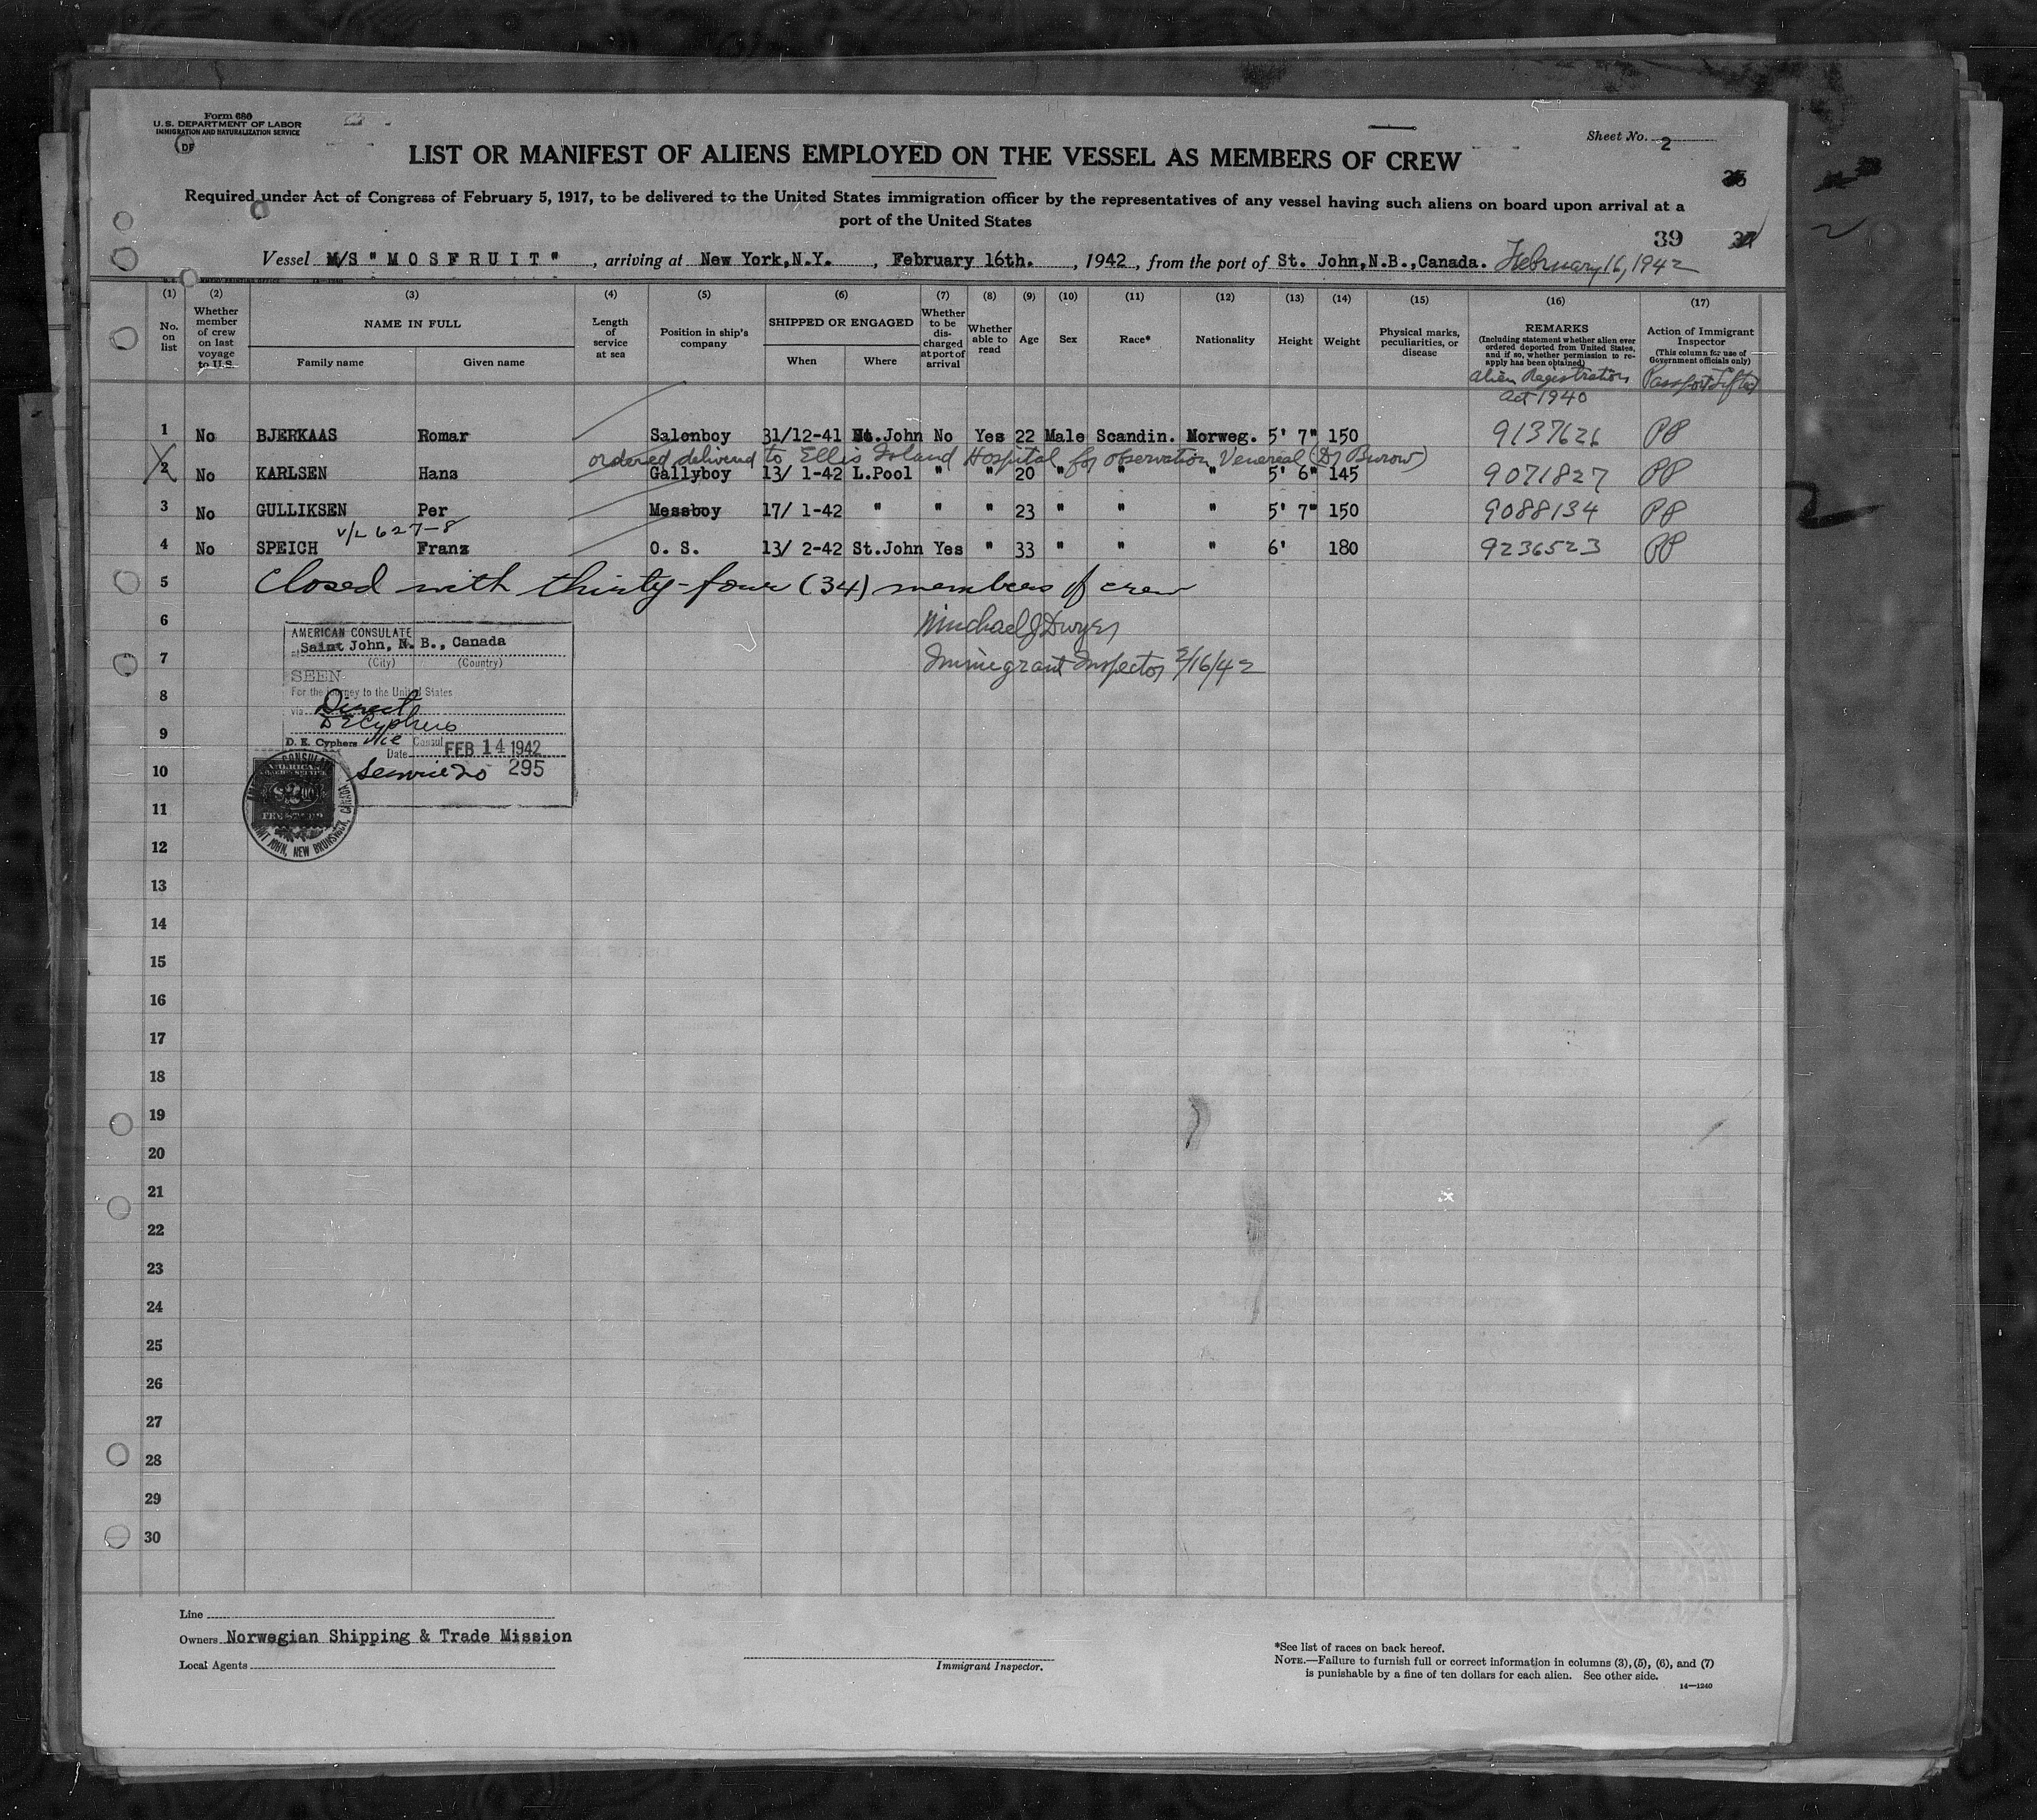 Form 680
U.S. DEPARTMENT OF LABOR
IMMIGRATION AND NATURALIZATION SERVICE
DF
Sheet No. 2
LIST OR MANIFEST OF ALIENS EMPLOYED ON THE VESSEL AS MEMBERS OF CREW
Required under Act of Congress of February 5, 1917, to be delivered to the United States immigration officer by the representatives of any vessel having such aliens on board upon arrival at a
port of the United States
39
Vessel M/S "MOSFRUIT", arriving at New York, N.Y., February 16th., 1942, from the port of St. John, N.B., Canada. February 16, 1942
(1) (2) (3) (4) (5) (6) (7) (8) (9) (10) (11) (12) (13) (14) (15) (16) (17)
No. on list
Whether member of crew on last voyage to U.S.
NAME IN FULL
Family name
Given name
Length of service at sea
Position in ship's company
SHIPPED OR ENGAGED
When
Where
Whether to be discharged at port of arrival
Whether able to read
Age
Sex
Race*
Nationality
Height
Weight
Physical marks, peculiarities, or disease
REMARKS
(Including statement whether alien ever ordered deported from United States, and if so, whether permission to reapply has been obtained)
Action of Immigrant Inspector
(This column for use of Government officials only)
Alien Registration Act 1940
Passport Lifted
1 No BJERKAAS Romar Salonboy 31/12-41 St.John No Yes 22 Male Scandin. Norweg. 5' 7" 150 9137626 PP
ordered delivered to Ellis Island Hospital for observation Venereal (Dr Burow)
2 No KARLSEN Hans Gallyboy 13/ 1-42 L.Pool " " 20 " " " 5' 6" 145 9071827 PP
3 No GULLIKSEN Per Messboy 17/ 1-42 " " " 23 " " " 5' 7" 150 9088134 PP
v/L 627-8
4 No SPEICH Franz O. S. 13/ 2-42 St.John Yes " 33 " " " 6' 180 9236523 PP
5 Closed with thirty-four (34) members of crew
6 Michael J Dwyer
7 Immigrant Inspector 2/16/42
AMERICAN CONSULATE
Saint John, N. B., Canada
(City) (Country)
SEEN
For the journey to the United States
via Direct
D E Cyphers
D. E. Cyphers Vice Consul
Date FEB 14 1942
Service No 295
AMERICAN CONSULATE
SAINT JOHN, NEW BRUNSWICK, CANADA
8
9
10
11
12
13
14
15
16
17
18
19
20
21
22
23
24
25
26
27
28
29
30
Line
Owners Norwegian Shipping & Trade Mission
Local Agents
Immigrant Inspector.
*See list of races on back hereof.
NOTE.—Failure to furnish full or correct information in columns (3), (5), (6), and (7)
is punishable by a fine of ten dollars for each alien. See other side.
14—1240